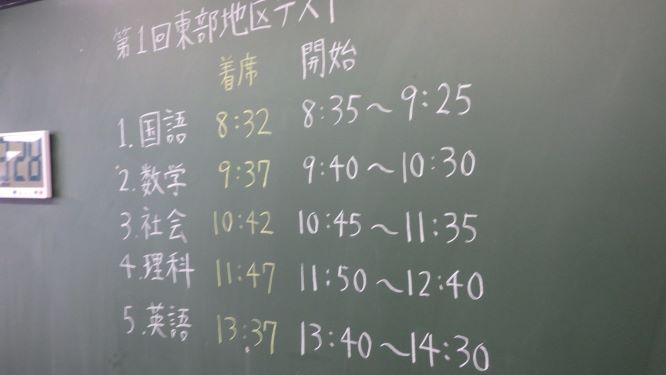 第1回東部地区テスト
着席 開始
1.国語 8:32 8:35～9:25
2.数学 9:37 9:40～10:30
3.社会 10:42 10:45～11:35
4.理科 11:47 11:50～12:40
5.英語 13:37 13:40～14:30